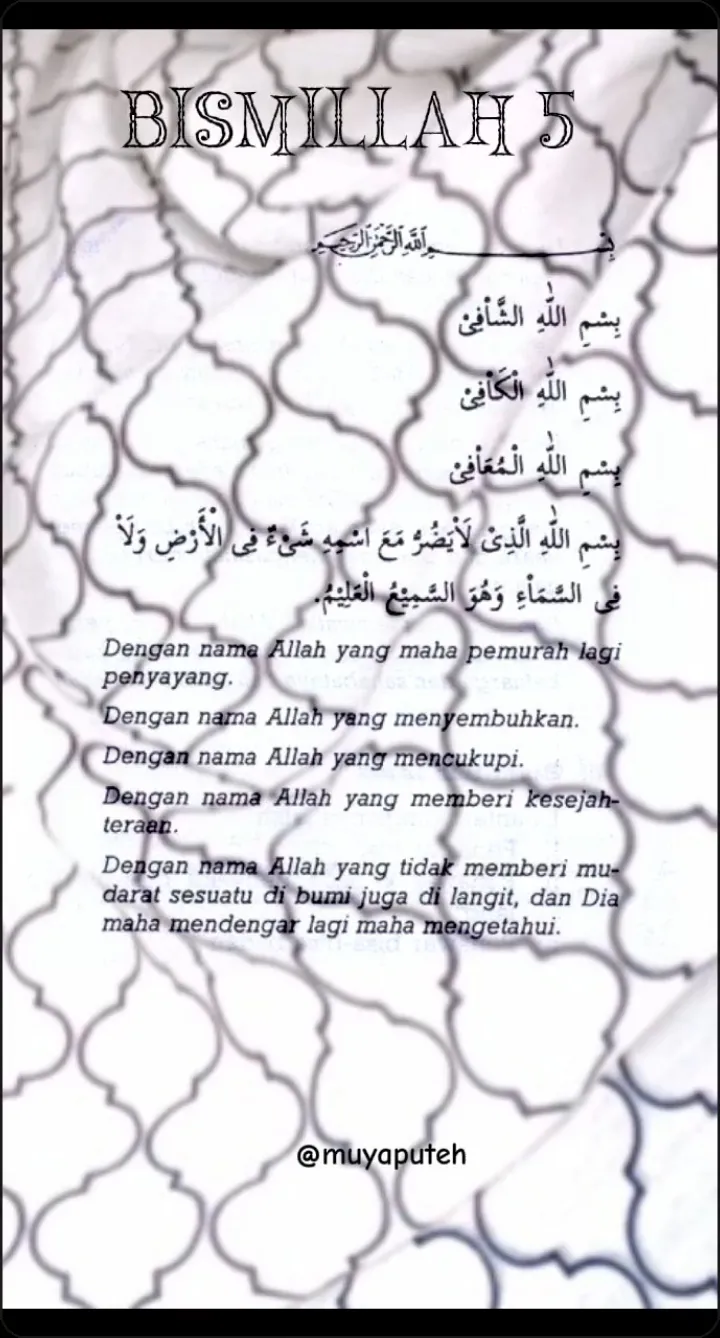 BISMILLAH 5
بِسْمِ اللَّهِ الرَّحْمَٰنِ الرَّحِيمِ
بِسْمِ اللّٰهِ الشَّاْفِىْ
بِسْمِ اللّٰهِ الْكَاْفِىْ
بِسْمِ اللّٰهِ الْمُعَاْفِىْ
بِسْمِ اللّٰهِ الَّذِىْ لَاْيَضُرُّ مَعَ اسْمِهِ شَىْءٌ فِى الْأَرْضِ وَلَاْ
فِى السَّمَاْءِ وَهُوَ السَّمِيْعُ الْعَلِيْمُ.
Dengan nama Allah yang maha pemurah lagi
penyayang.
Dengan nama Allah yang menyembuhkan.
Dengan nama Allah yang mencukupi.
Dengan nama Allah yang memberi kesejah-
teraan.
Dengan nama Allah yang tidak memberi mu-
darat sesuatu di bumi juga di langit, dan Dia
maha mendengar lagi maha mengetahui.
@muyaputeh